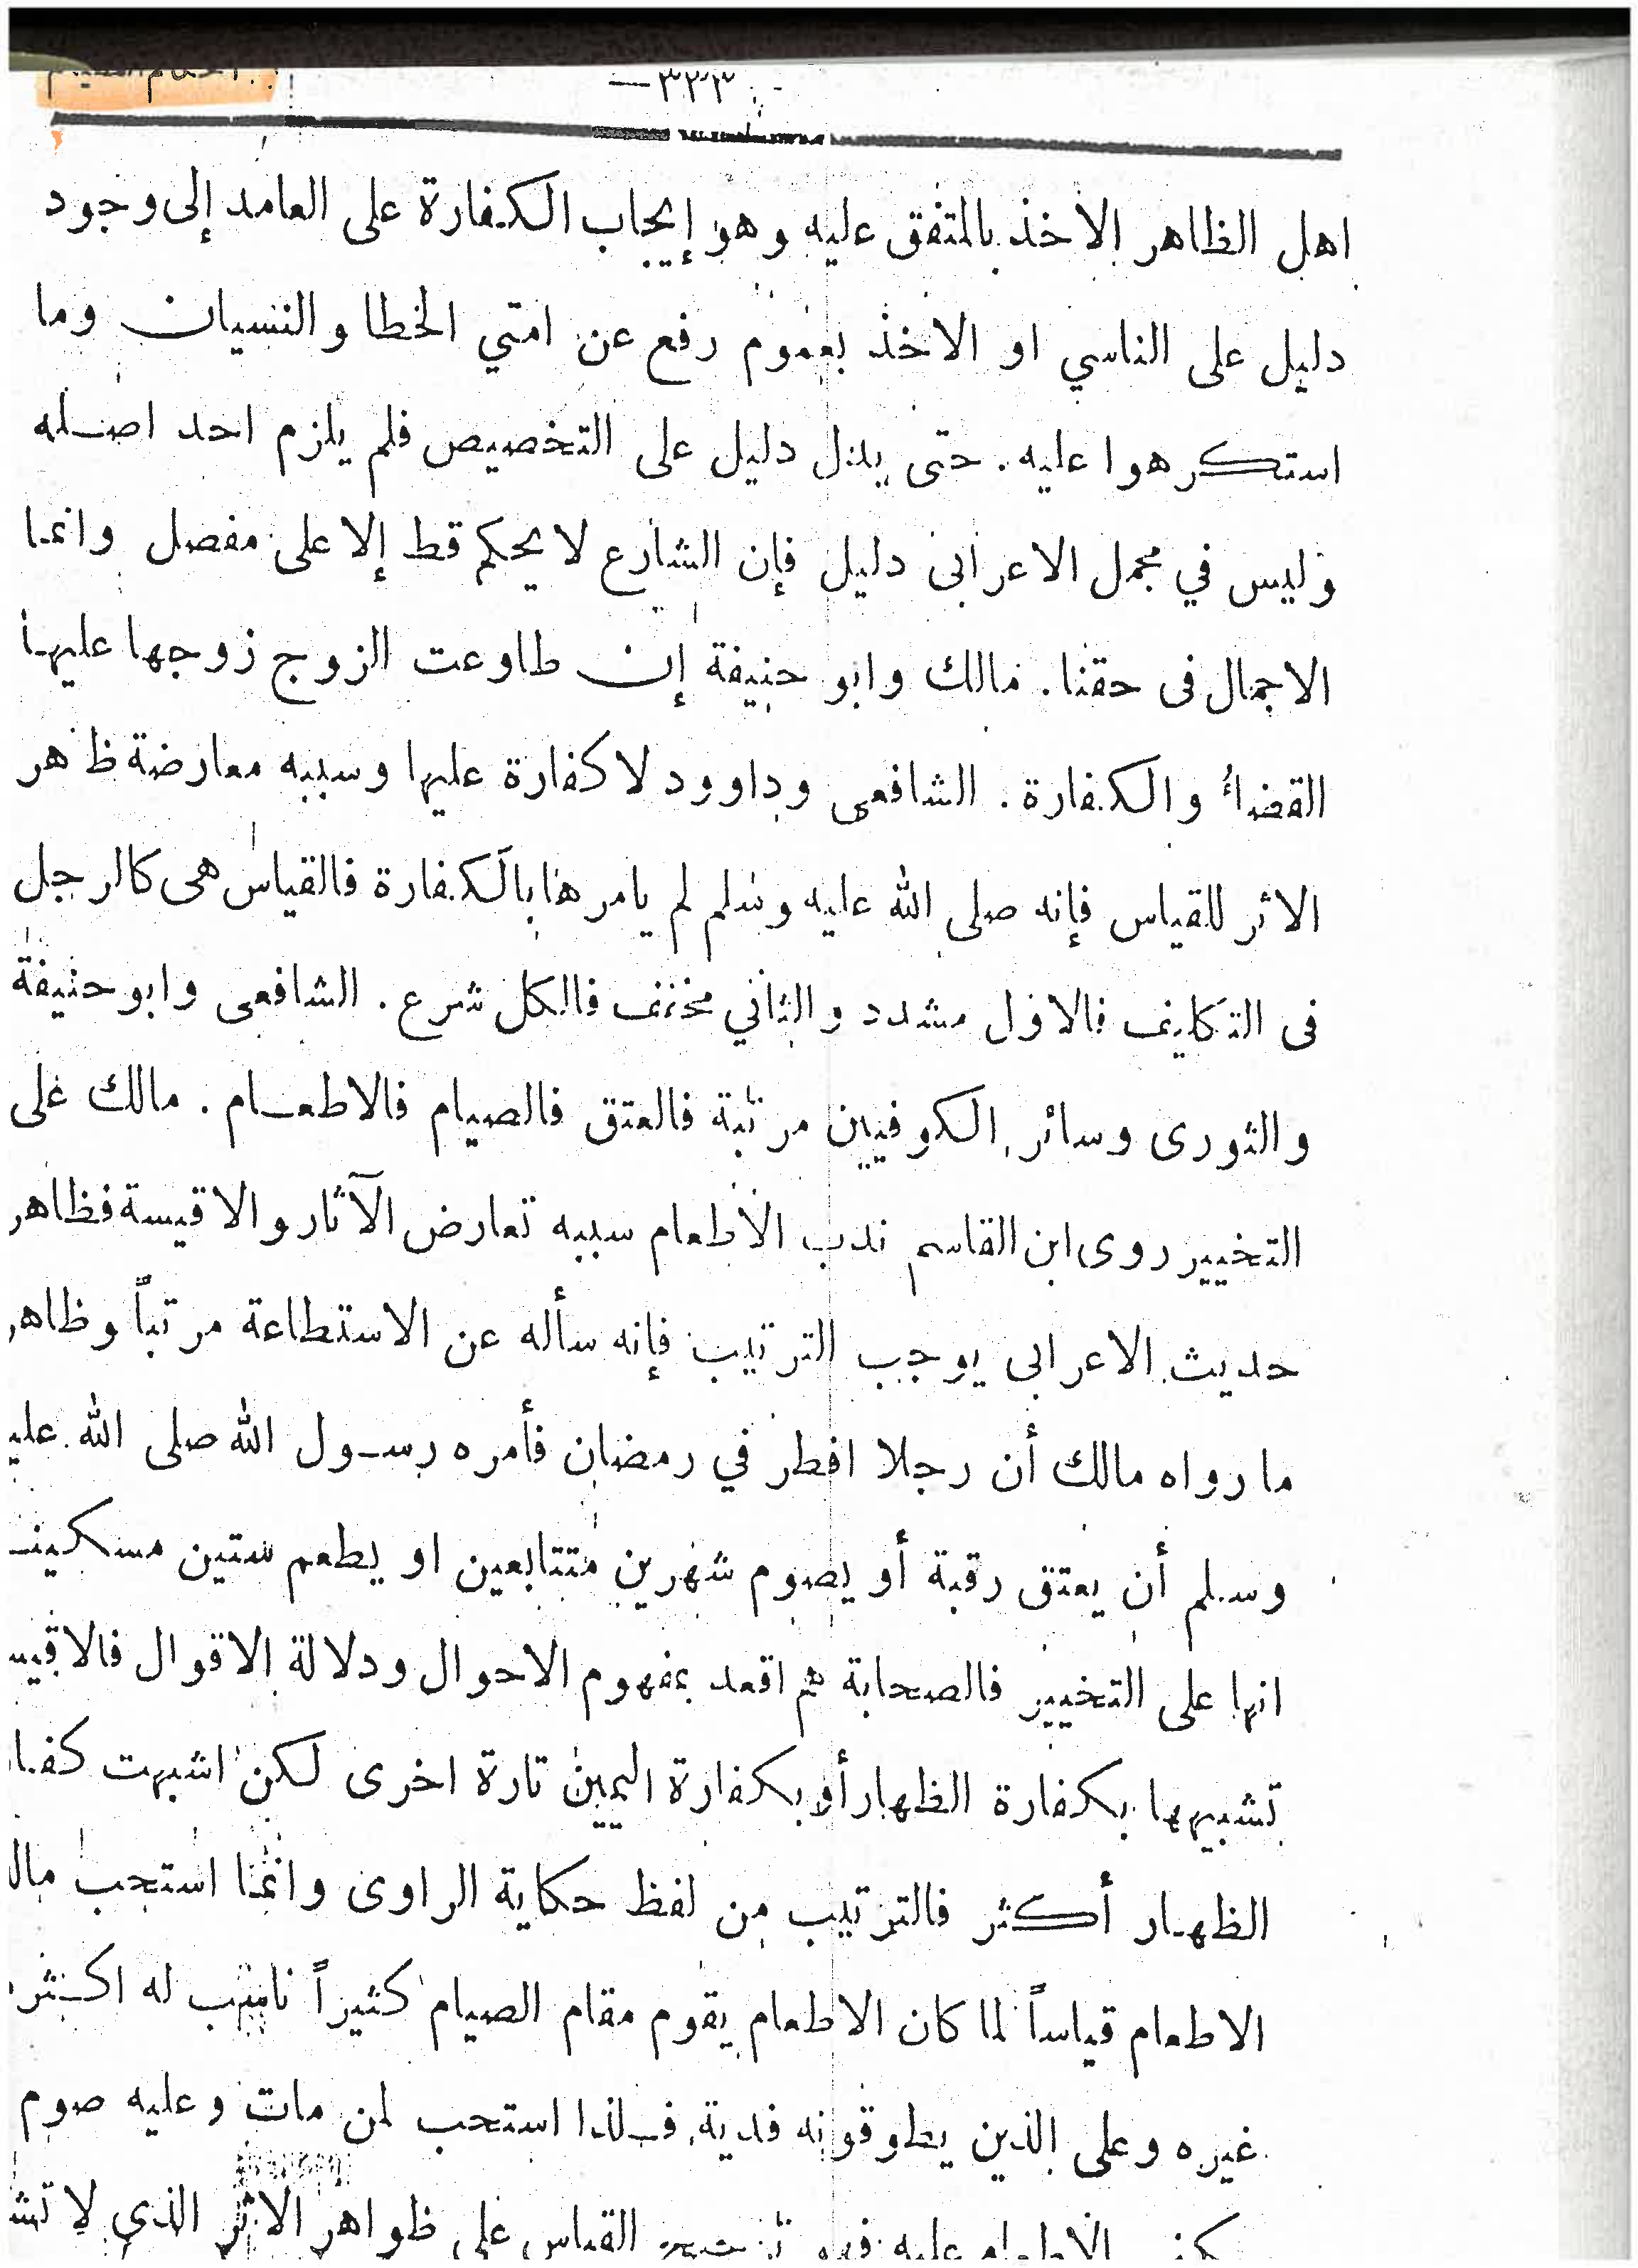 — ٣٣٣ —
اهل الظاهر الاخذ بالمتفق عليه وهو إيجاب الكفارة على العامد إلى وجود
دليل على الناسي او الاخذ بعموم رفع عن امتي الخطا والنسيان وما
استكرهوا عليه. حتى يدل دليل على التخصيص فلم يلزم احد اصله
وليس في مجمل الاعرابى دليل فإن الشارع لا يحكم قط إلا على مفصل وانما
الاجمال فى حقنا. مالك وابو حنيفة إن طاوعت الزوج زوجها عليها
القضاء والكفارة. الشافعى وداوود لا كفارة عليها وسببه معارضة ظاهر
الاثر للقياس فإنه صلى الله عليه وسلم لم يامرها بالكفارة فالقياس هى كالرجل
فى التكليف فالاول مشدد والثاني مخفف فالكل شرع. الشافعى وابو حنيفة
والثورى وسائر الكوفيين مرتبة فالعتق فالصيام فالاطعام. مالك على
التخيير روى ابن القاسم ندب الاطعام سببه تعارض الآثار والاقيسة فظاهر
حديث الاعرابى يوجب الترتيب فإنه سأله عن الاستطاعة مرتباً وظاهر
ما رواه مالك أن رجلا افطر في رمضان فأمره رسول الله صلى الله عليـ
وسلم أن يعتق رقبة أو يصوم شهرين متتابعين او يطعم ستين مسكينـ
انها على التخيير فالصحابة هم اقعد بمفهوم الاحوال ودلالة الاقوال فالاقيسـ
تشبيهها بكفارة الظهار أو بكفارة اليمين تارة اخرى لكن اشبهت كفا
الظهار أكثر فالترتيب من لفظ حكاية الراوى وانما استحب مالـ
الاطعام قياساً لما كان الاطعام يقوم مقام الصيام كثيراً ناسب له اكثر
غيره وعلى الذين يطوقونه فدية فلذا استحب لمن مات وعليه صوم
الاطعام عليه القياس على ظواهر الاثر الذي لا تشـ